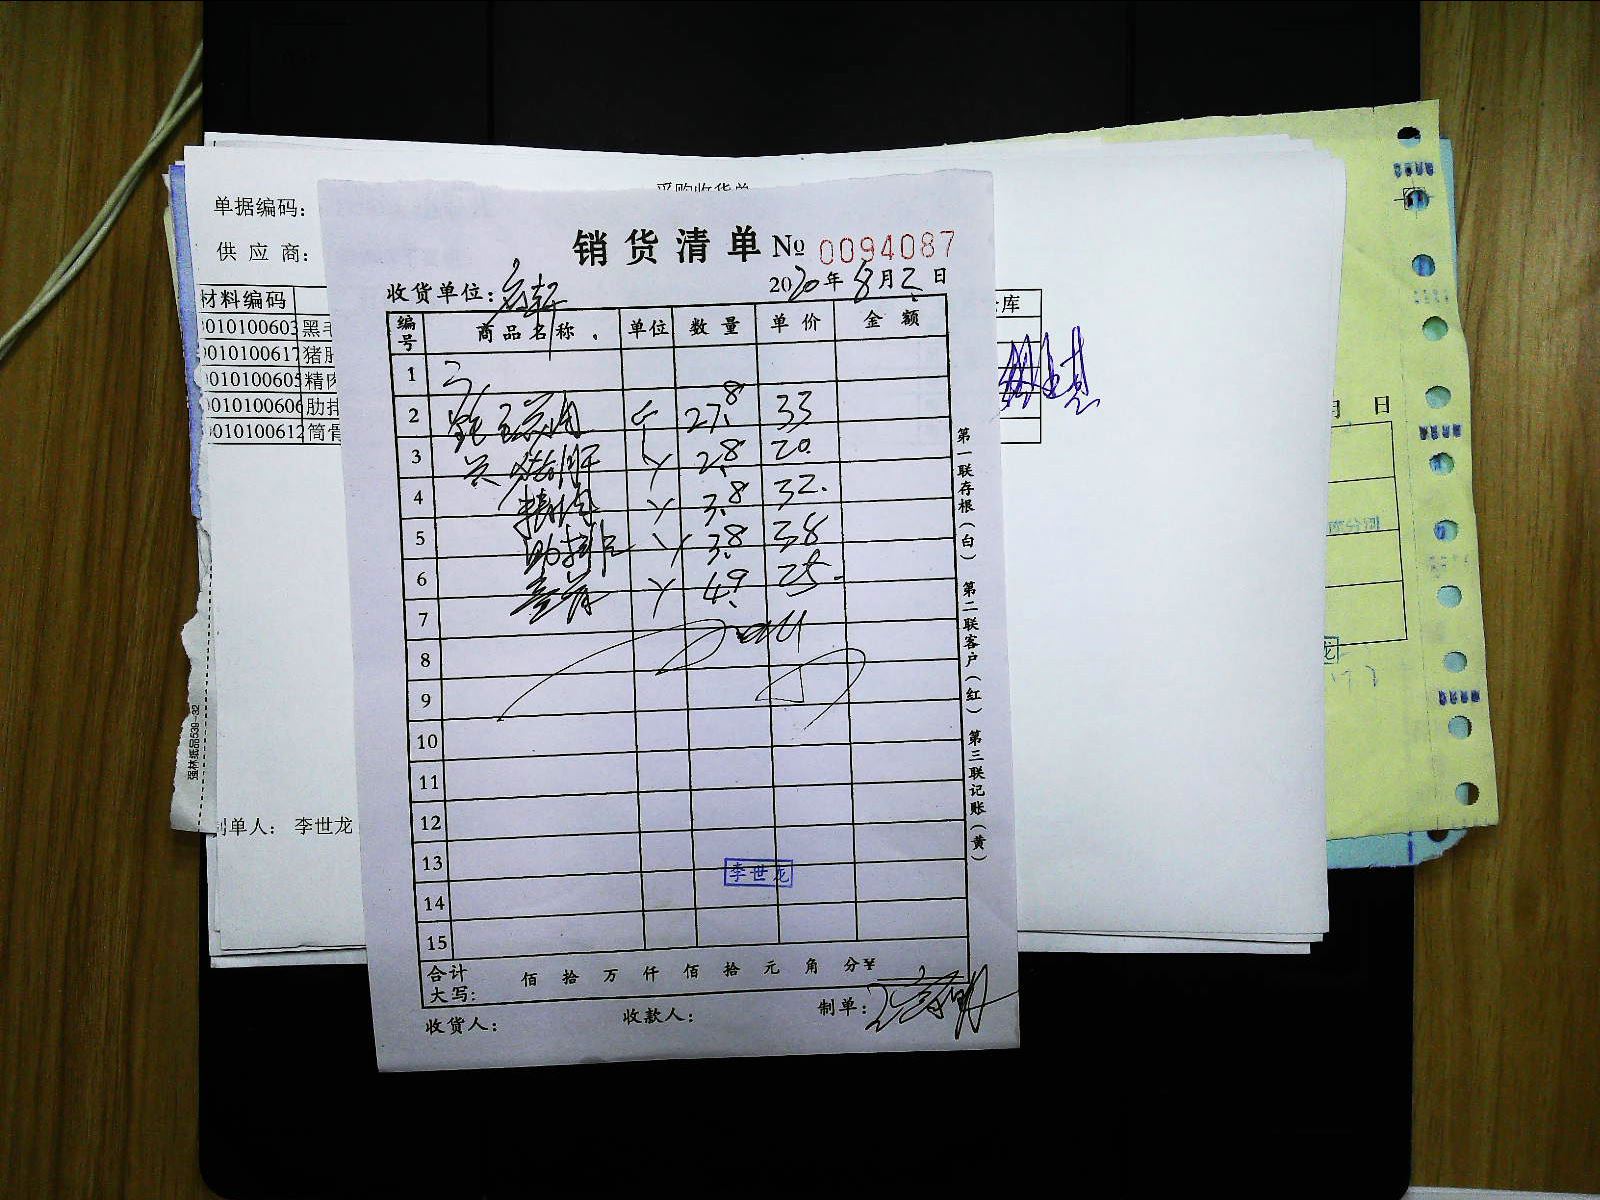 采购收货单
单据编码：
供 应 商：
材料编码
仓库
0010100603 黑毛
0010100617 猪肝
0010100605 精肉
0010100606 肋排
0010100612 筒骨
制单人： 李世龙
强林纸品539-32
销货清单 № 0094087
收货单位：
2020年8月2日
编号 商品名称 单位 数量 单价 金额
1
2 27.8 33
3 猪肝 2.8 20
4 精肉 3.8 32
5 肋排 3.8 38
6 4.9 25
7
8
9
10
11
12
13
14
15
李世龙
合计大写： 佰 拾 万 仟 佰 拾 元 角 分 ¥
收货人： 收款人： 制单：
第一联存根（白） 第二联客户（红） 第三联记账（黄）
月 日